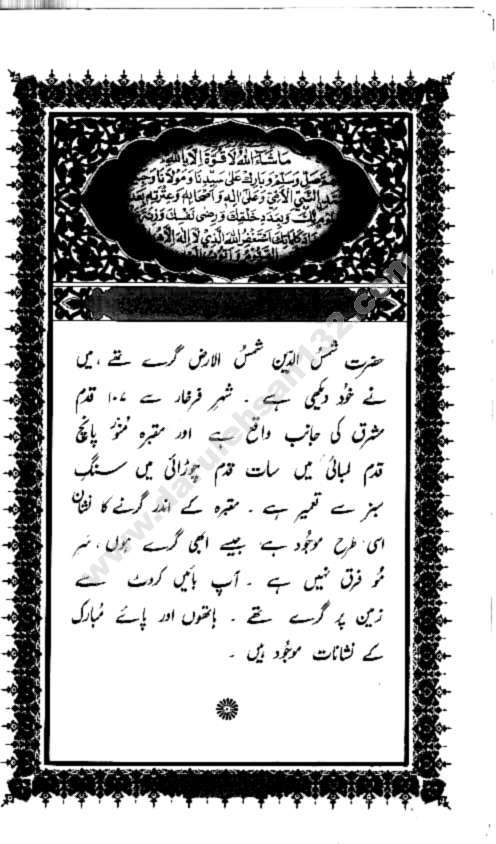 ماشاء الله لا قوة الا بالله
صل وسلم وبارك على سيدنا ومولانا
النبي الامي وعلى اله و اصحابه وعترته بعدد
وبعدد خلقك ورضى نفسك وزنة
كلماتك استغفر الله الذي لا اله الا
حضرت شمسُ الدّین شمسُ الارض گرے تھے ، میں
نے خُود دیکھی ہے ۔ شہرِ فرخار سے ۱۰۷ قدم
مشرق کی جانب واقع ہے اور مقبرہ پانچ
قدم لمبائی میں سات قدم چوڑائی میں سنگِ
سبز سے تعمیر ہے ۔ مقبرہ کے اندر گرنے کا نشان
اسی طرح موجُود ہے جیسے ابھی گرے ہوں ، سَرِ
مُو فرق نہیں ہے ۔ آپ بائیں کروٹ سے
زمین پر گرے تھے ۔ ہاتھوں اور پائے مُبارک
کے نشانات موجُود ہیں ۔